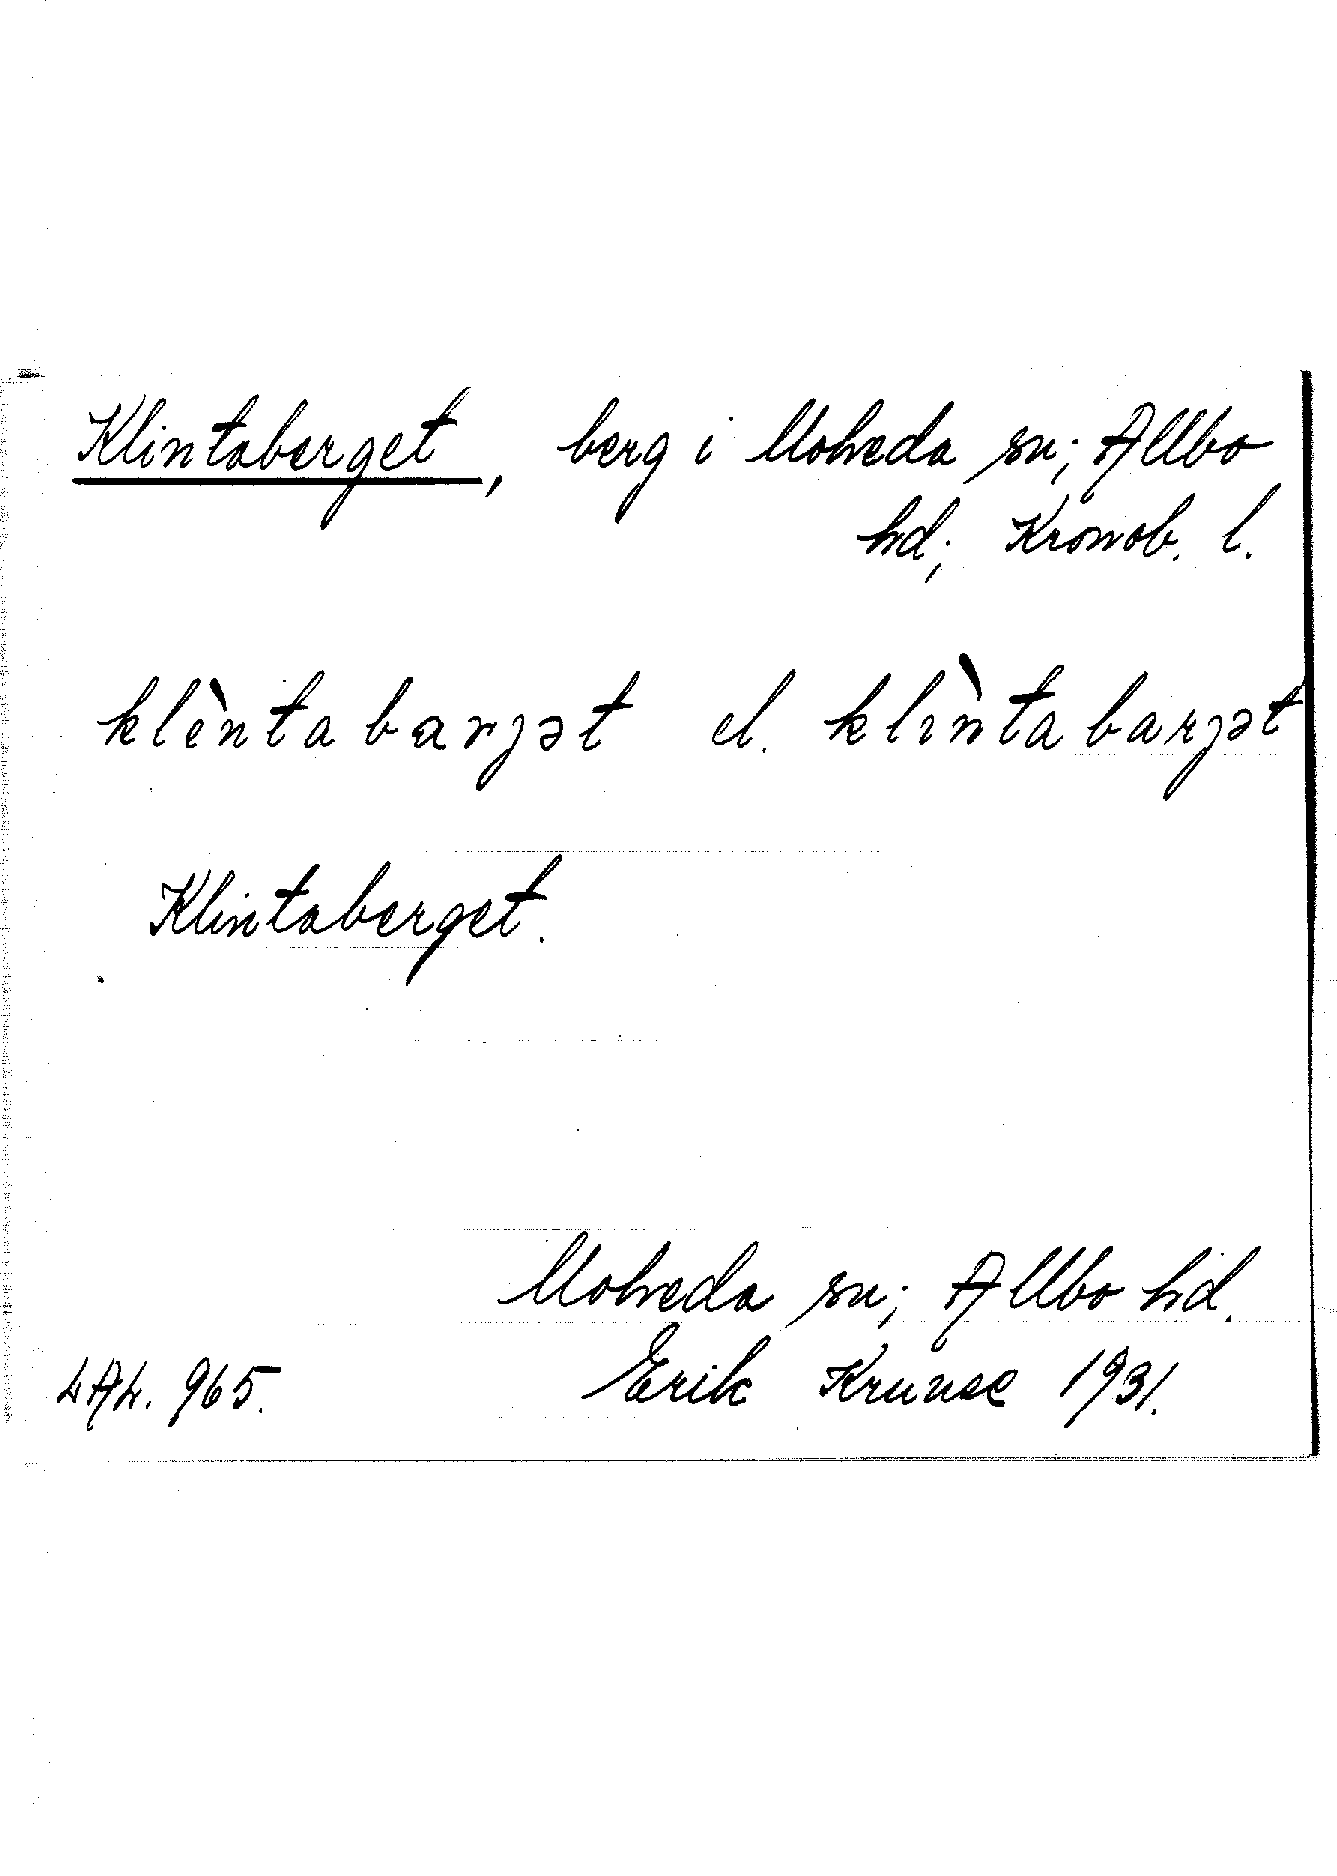 Klintaberget, berg i Moheda sn; Allbo
hd; Kronob. l.
klèntabarjət el. klìntabarjət
Klintaberget.
Moheda sn; Allbo hd.
LAL. 965.
Erik Kruuse 1931.